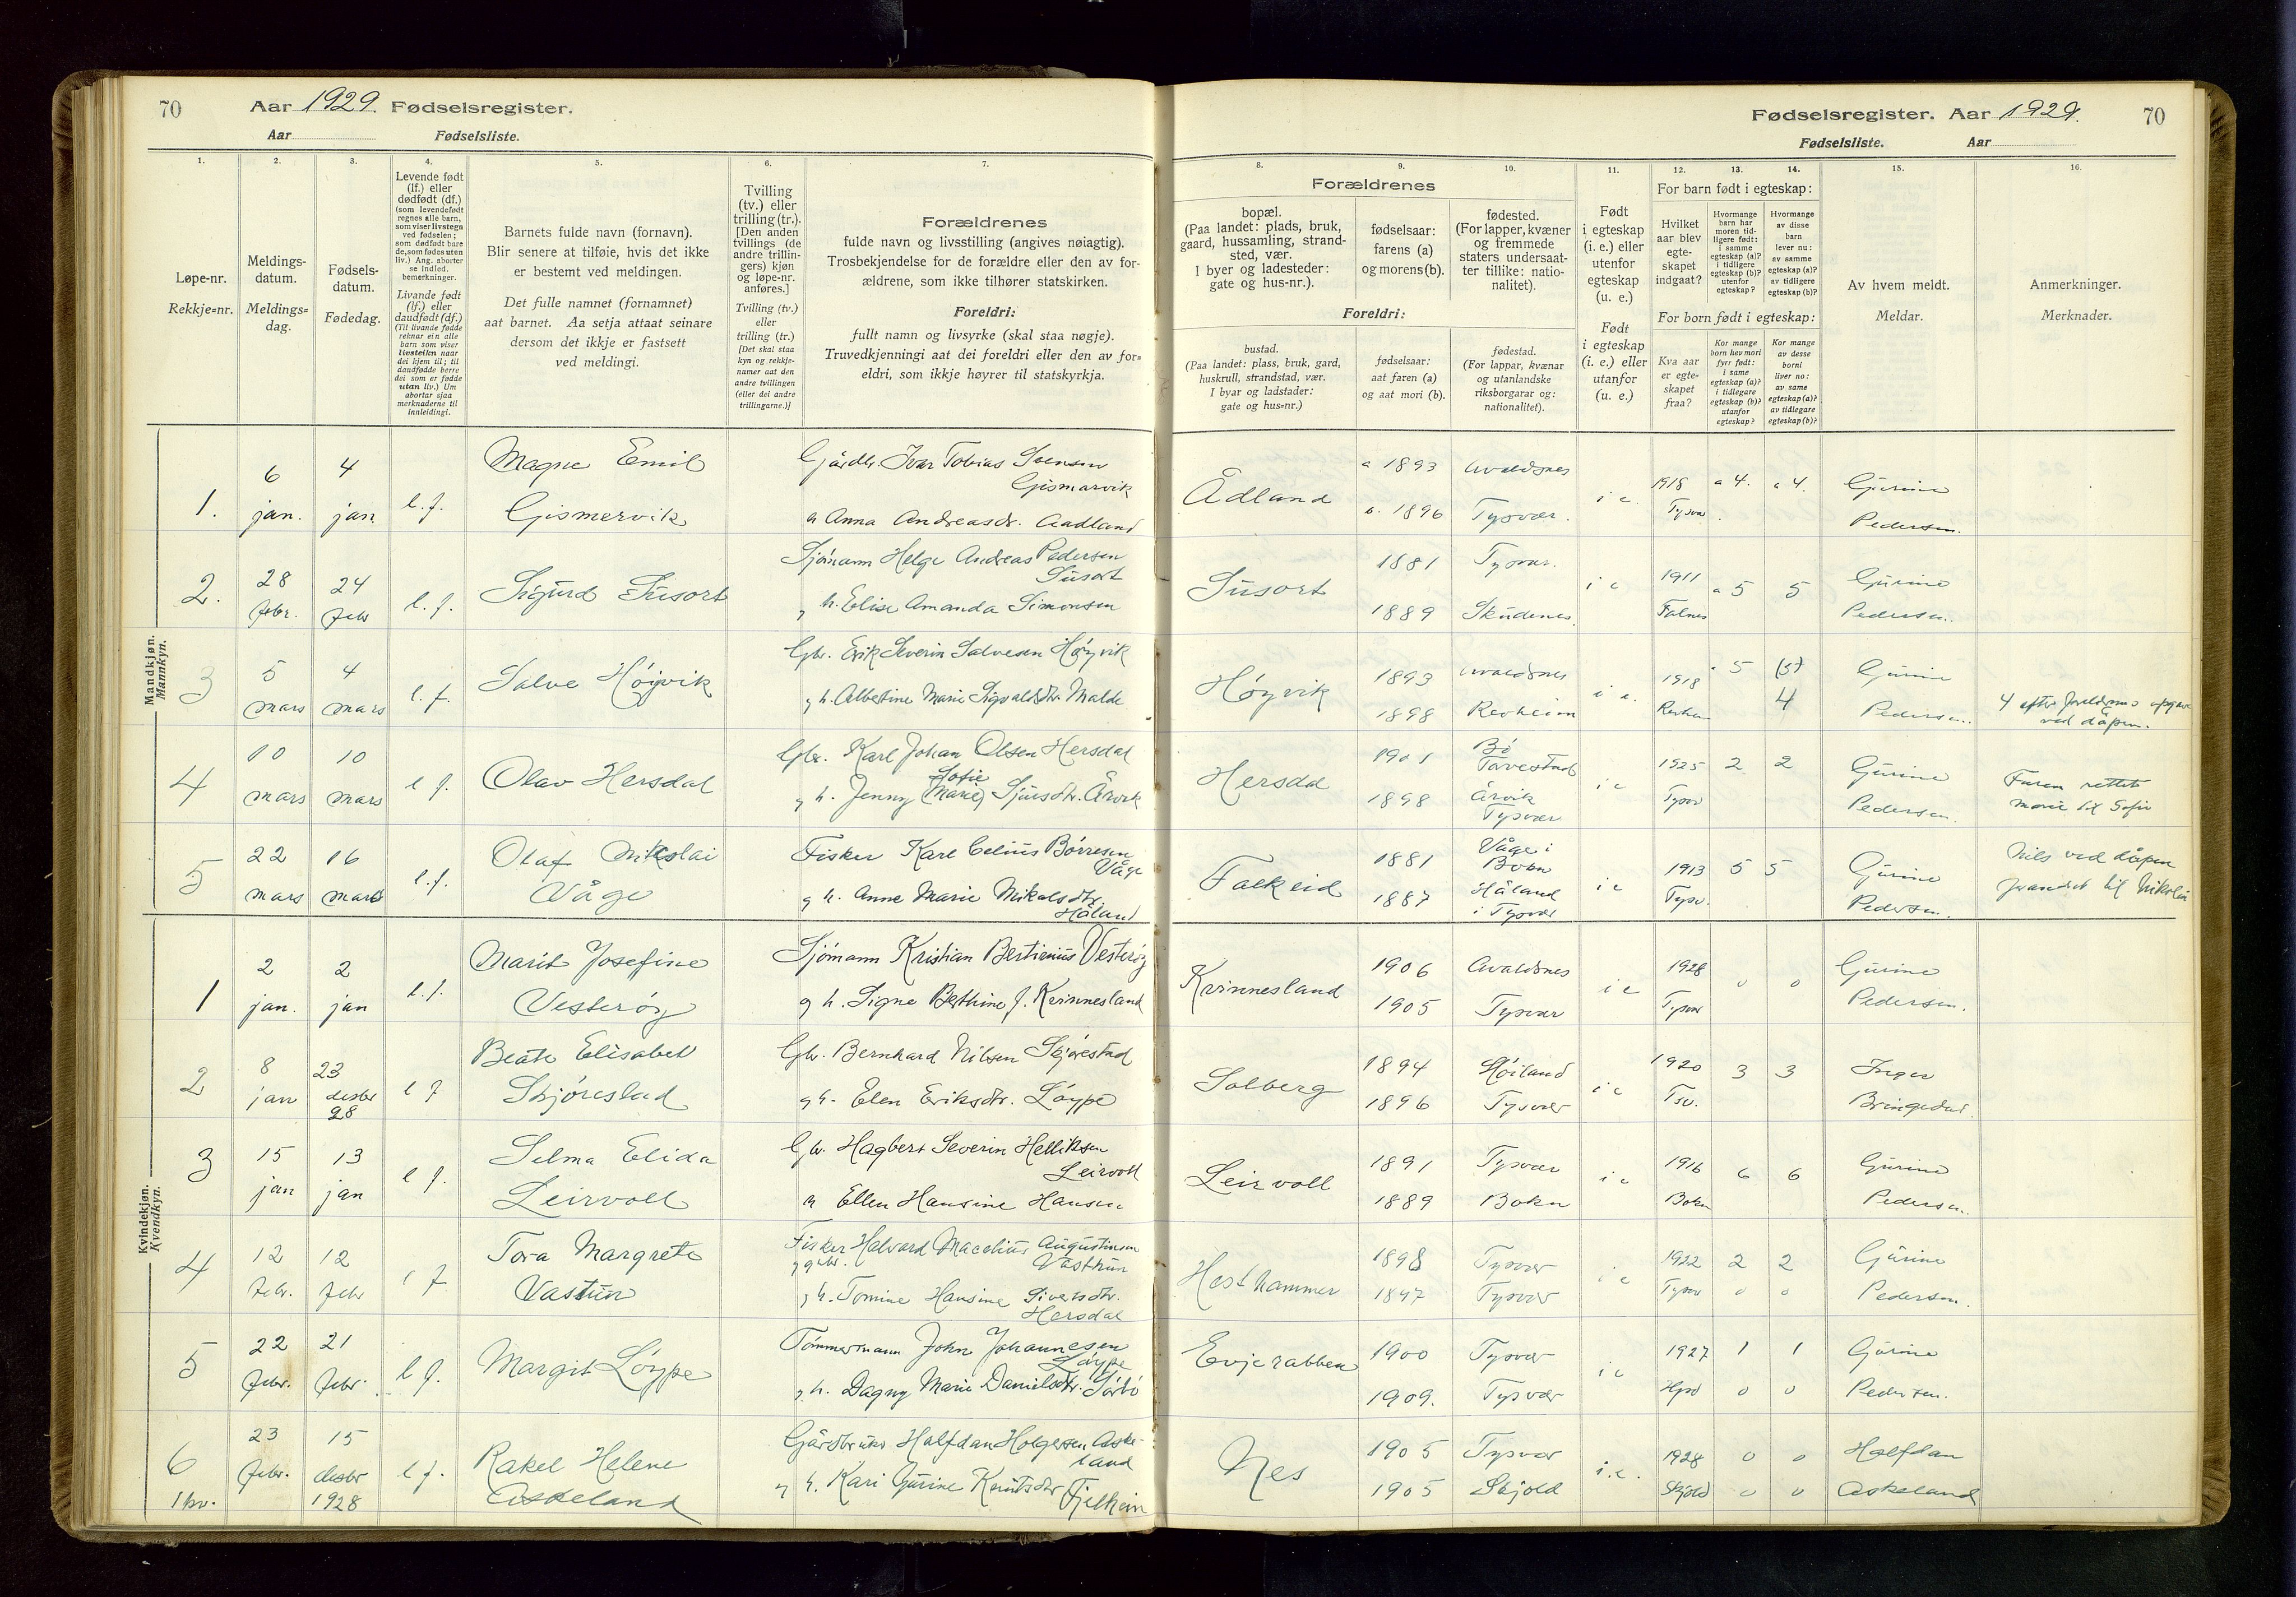 70 Aar 1929. Fødselsregister.
Aar Fødselsliste.
Fødselsregister. Aar 1929. 70
Fødselsliste. Aar
1. 2. 3. 4. 5. 6. 7.
Løpe-nr.
Rekkje=nr.
Meldings-
datum.
Meldings=
dag.
Fødsels-
datum.
Fødedag.
Levende født
(lf.) eller
dødfødt (df.)
(som levendefødt
regnes alle barn,
som viser livstegn
ved fødselen;
som dødfødt bare
de, som fødes uten
liv.) Ang. aborter
se indled.
bemerkninger.
Livande født
(lf.) eller
daudfødt (df.)
(Til livande fødde
reknar ein alle
barn som viser
livsteikn naar
dei kjem til; til
daudfødde berre
dei som er fødde
utan liv.) Um
abortar sjaa
merknaderne til
innleidingi.
Barnets fulde navn (fornavn).
Blir senere at tilføie, hvis det ikke
er bestemt ved meldingen.
Det fulle namnet (fornamnet)
aat barnet. Aa setja attaat seinare
dersom det ikkje er fastsett
ved meldingi.
Tvilling
(tv.) eller
trilling (tr.).
[Den anden
tvillings (de
andre trillin-
gers) kjøn
og løpe-nr.
anføres.]
Tvilling (tv.)
eller
trilling (tr.)
[Det skal staa
kyn og rekkje-
numer aat den
andre tvillingen
(eller dei andre
trillingarne.)]
Forældrenes
fulde navn og livsstilling (angives nøiagtig).
Trosbekjendelse for de forældre eller den av for-
ældrene, som ikke tilhører statskirken.
Foreldri:
fullt namn og livsyrke (skal staa nøgje).
Truvedkjenningi aat dei foreldri eller den av for=
eldri, som ikkje høyrer til statskyrkja.
8. 9. 10. 11. 12. 13. 14. 15. 16.
Forældrenes
bopæl.
(Paa landet: plads, bruk,
gaard, hussamling, strand-
sted, vær.
I byer og ladesteder:
gate og hus-nr.).
fødselsaar:
farens (a)
og morens (b).
fødested.
(For lapper, kvæner
og fremmede
staters undersaat-
ter tillike: natio-
nalitet).
Foreldri:
bustad.
(Paa landet: plass, bruk, gard,
huskrull, strandstad, vær.
I byar og ladstader:
gate og hus=nr.)
fødselsaar:
aat faren (a)
og aat mori (b).
fødestad.
(For lappar, kvænar
og utanlandske
riksborgarar og:
nationalitet).
Født
i egteskap
(i. e.) eller
utenfor
egteskap
(u. e.)
Født
i egteskap
(i. e.) eller
utanfor
(u. e.)
For barn født i egteskap:
Hvilket
aar blev
egte-
skapet
indgaat?
Hvormange
barn har
moren tid-
ligere født:
i samme
egteskap (a)?
i tidligere
egteskap (b)?
utenfor
egteskap?
Hvormange
av disse
barn
lever nu:
av samme
egteskap (a)?
av tidligere
egteskap (b)?
For born født i egteskap:
Kva aar
er egte=
skapet
fraa?
Kor mange
born hev mori
fyrr født:
i same
egteskap (a)?
i tidlegare
egteskap (b)?
utanfor
egteskap?
Kor mange
av desse
borni
liver no:
av same
egteskap (a)?
av tidlegare
egteskap (b)?
Av hvem meldt.
Meldar.
Anmerkninger.
Merknader.
Mandkjøn.
Mannkyn.
1. 6 jan. 4 jan l.f. Magne Emil
Gismervik
Gårdbr. Ivar Tobias Svensen
Gismarvik
Anna Andreasdr. Aadland
Ådland a 1893 Avaldsnes
b. 1896 Tysvær.
i e. 1918 Tysvær a 4. a 4. Gurine
Pedersen.
2. 28 febr. 24 febr l.f. Sigurd Susort
Sjømann Helge Andreas Pedersen
Susort
g h. Elise Amanda Simonsen
Susort 1881 Tysvær.
1889 Skudenes.
i e 1911 Falnes a 5 5 Gurine
Pedersen.
3 5 mars 4 mars l.f. Salve Høyvik
Gbr. Erik Severin Salvesen Høyvik
g h. Albertine Marie Sigvaldsdtr. Malde
Høyvik 1893 Avaldsnes
1898 Revheim
i e. 1918 5 (5)
4 Gurine
Pedersen.
4 efter foreldrenes opgave
ved dåpen.
4 10 mars 10 mars l f. Olav Hersdal
Gbr. Karl Johan Olsen Hersdal
Sofie
g h. Jenny (Marie) Sjursdtr. Årvik
Hersdal 1901 Bø
Tavestad
1898 Årvik
Tysvær
i e 1925 Tysvær 2 2 Gurine
Pedersen.
Faren rettet
Marie til Sofie
5 22 mars 16 mars l.f. Olaf Nikolai
Våge
Fisker Karl Celius Børresen
Våge
g h. Anne Marie Nikolsdtr.
Håland
Falkeid 1881 Våge i
Bokn
1887 Håland
i Tysvær
i e 1913 Tysv. 5 5 Gurine
Pedersen.
Nils ved dåpen
forandret til Nikolai
Kvindekjøn.
Kvendkyn.
1 2 jan. 2 jan l.f. Marit Josefine
Vesterøy
Sjømann Kristian Bertinius Vesterøy
g h. Signe Bethine f. Kvinnesland
Kvinnesland 1906 Avaldsnes
1905 Tysvær
i e 1928 Tysvær 0 0 Gurine
Pedersen.
2 8 jan 23 desbr 28 l f Beate Elisabet
Skjørestad
Gbr. Bernhard Nilsen Skjørestad
g h. Elen Eriksdtr. Løype
Solberg 1894 Høiland
1896 Tysvær
i e 1920 Tsv. 3 3 Inger
Bringedal.
3 15 jan 13 jan l f. Selma Elida
Leirvoll
Gbr. Hagbert Severin Helliksen
Leirvoll
Ellen Hansine Hansen
Leirvoll 1891 Tysvær
1889 Bokn
i e 1916 Bokn 6 6 Gurine
Pedersen.
4 12 febr. 12 febr l f. Tora Margrete
Vastun
Fisker Halvard Macelius Augustinsen
g gbr. Vasthun
g h. Tomine Hansine Sivertsdtr.
Hersdal
Hesthammer 1898 Tysvær
1897 Tysvær
i e 1922 Tysvær 2 2
0 0 Gurine
Pedersen.
5 22 febr. 21 febr. l f. Margit Løype
Tømmermann John Johannesen
Løype
g h. Dagny Marie Danielsdtr. Sørbø
Evjerabben 1900 Tysvær
1909. Tysvær
i e 1927 1 1
0 0 Gurine
Pedersen.
6 1 kv. 23 febr. 15 desbr 1928 l f. Rakel Helene
Askeland
Gårdbruker Halfdan Holgersen Aske-
land
g h. Kari Gurine Knutsdtr Fjelheim
Nes 1905 Tysvær
1905 Skjold
i.e. 1928 Skjold 0 0
0 0 Halfdan
Askeland